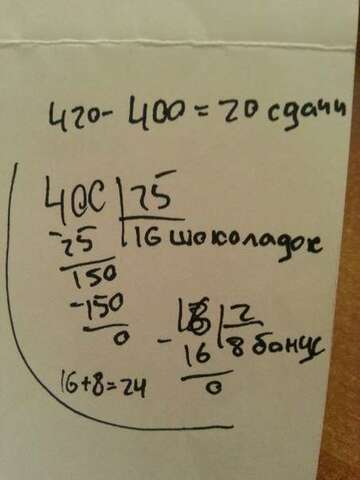 420-400=20 сдачи
400 | 25
-25 | 16 шоколадок
150
-150
0
16 | 2
- 16 | 8 бонус
0
16+8=24